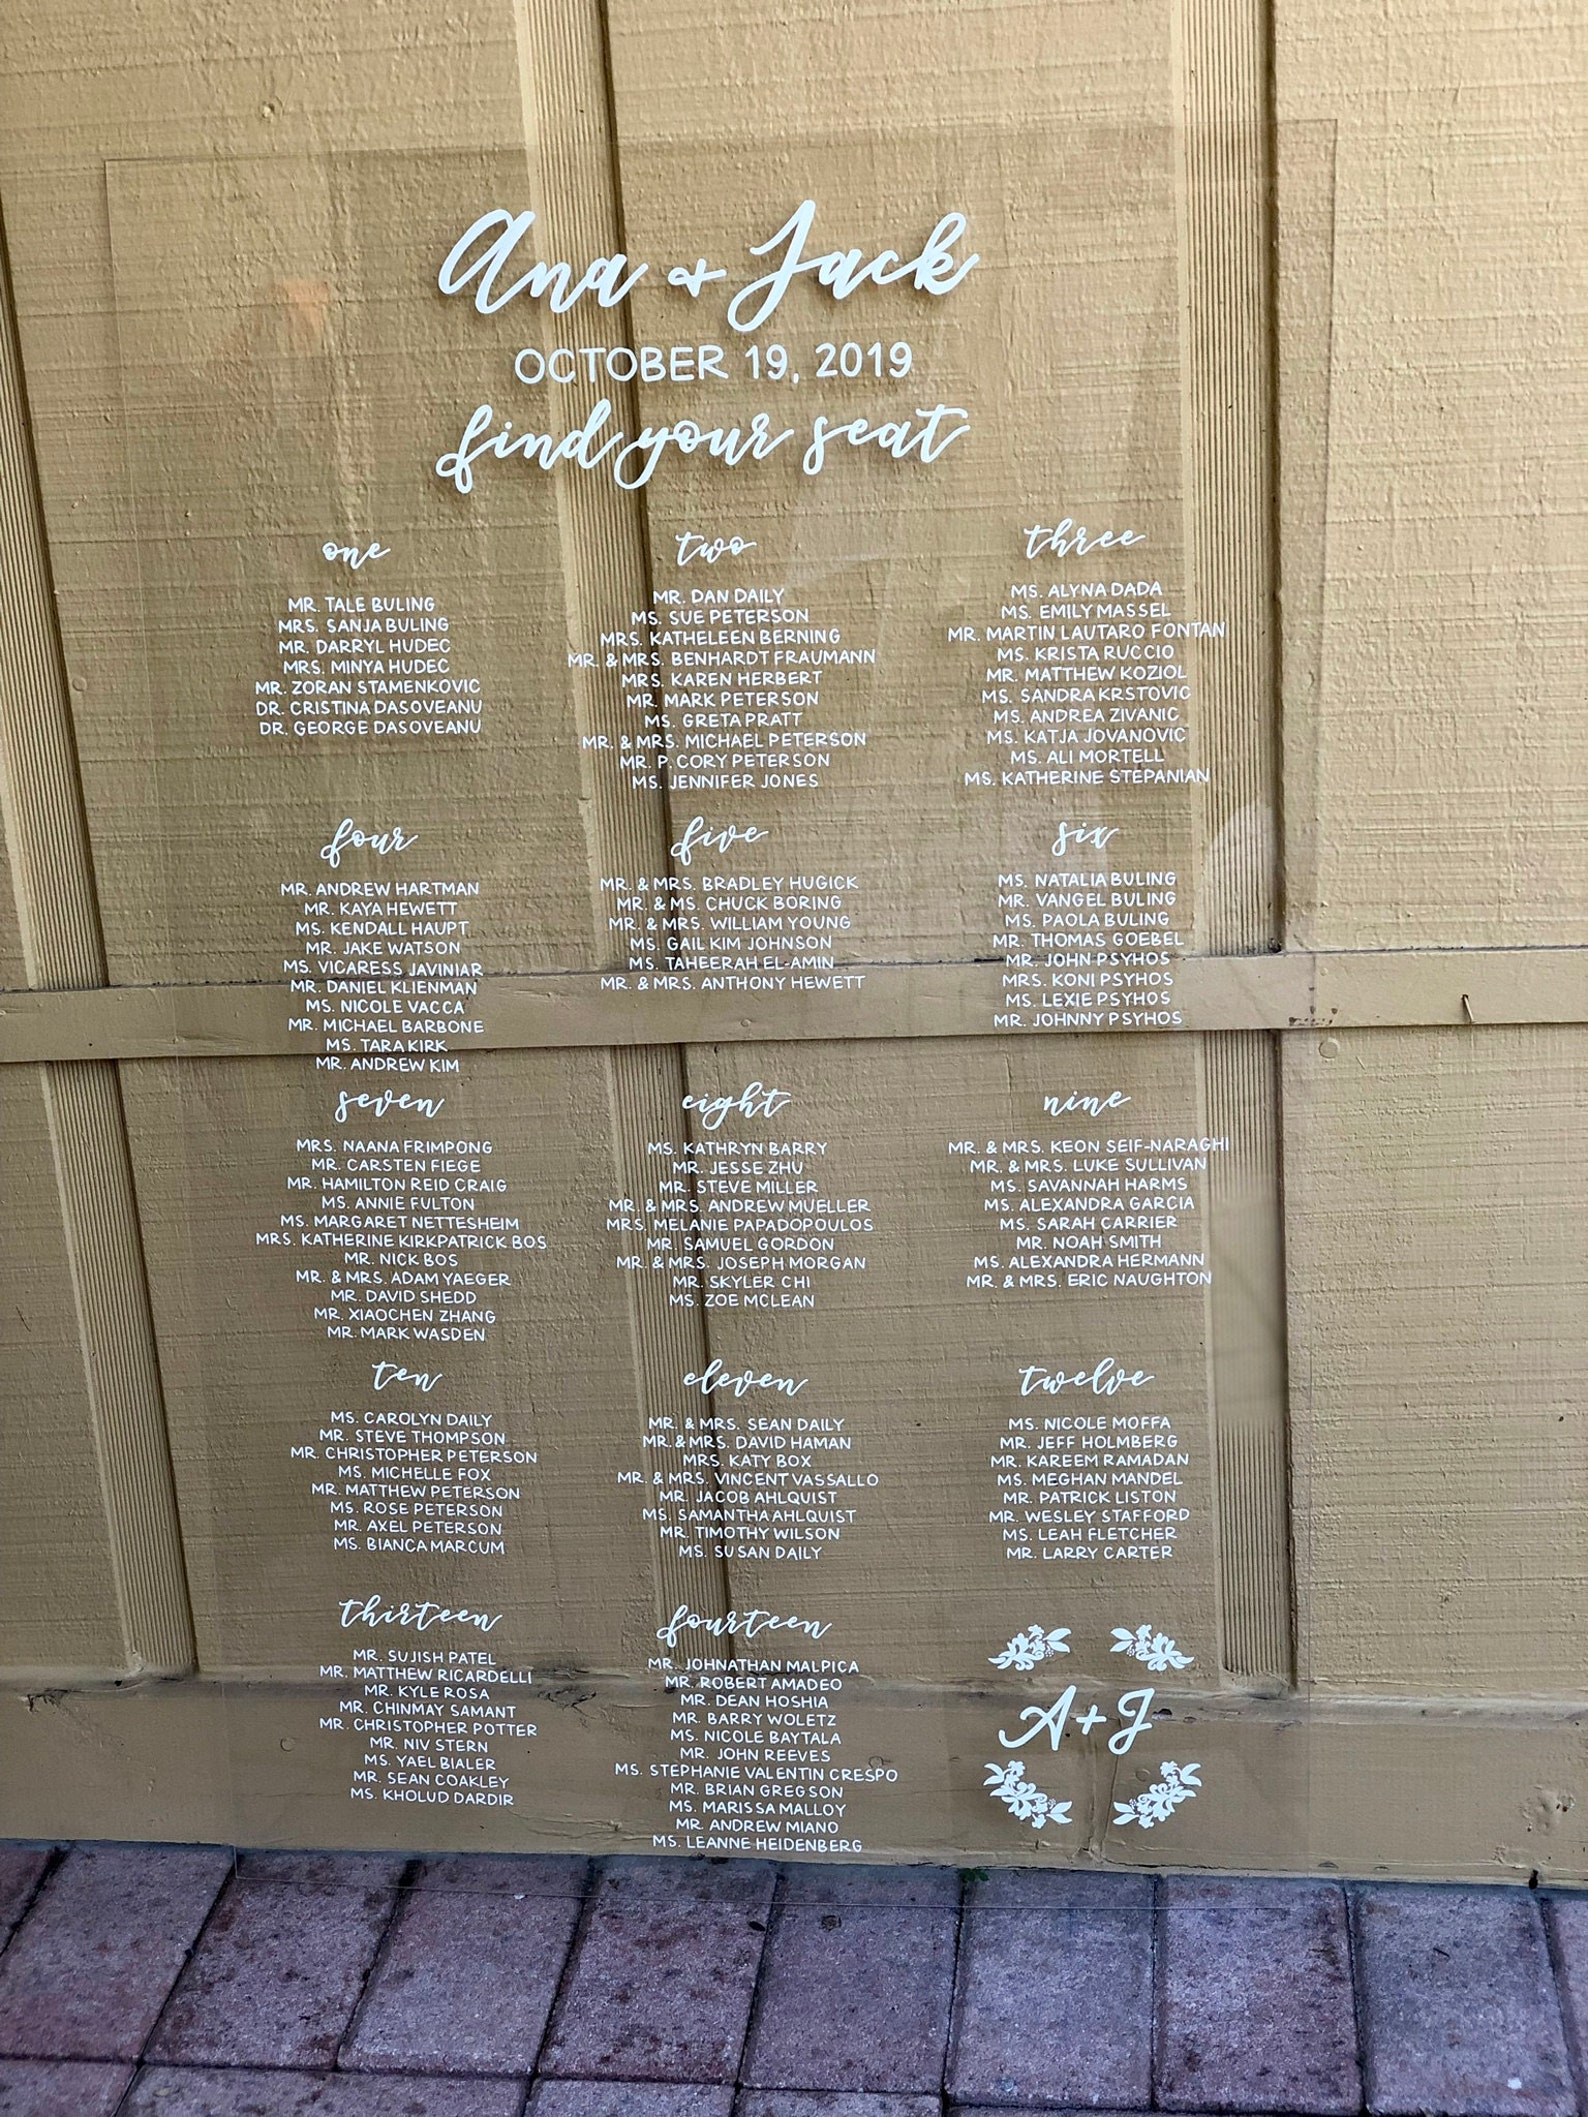 Ana + Jack
OCTOBER 19, 2019
find your seat
one
MR. TALE BULING
MRS. SANJA BULING
MR. DARRYL HUDEC
MRS. MINYA HUDEC
MR. ZORAN STAMENKOVIC
DR. CRISTINA DASOVEANU
DR. GEORGE DASOVEANU
two
MR. DAN DAILY
MS. SUE PETERSON
MRS. KATHELEEN BERNING
MR. & MRS. BENHARDT FRAUMANN
MRS. KAREN HERBERT
MR. MARK PETERSON
MS. GRETA PRATT
MR. & MRS. MICHAEL PETERSON
MR. P. CORY PETERSON
MS. JENNIFER JONES
three
MS. ALYNA DADA
MS. EMILY MASSEL
MR. MARTIN LAUTARO FONTAN
MS. KRISTA RUCCIO
MR. MATTHEW KOZIOL
MS. SANDRA KRSTOVIC
MS. ANDREA ZIVANIC
MS. KATJA JOVANOVIC
MS. ALI MORTELL
MS. KATHERINE STEPANIAN
four
MR. ANDREW HARTMAN
MR. KAYA HEWETT
MS. KENDALL HAUPT
MR. JAKE WATSON
MS. VICARESS JAVINIAR
MR. DANIEL KLIENMAN
MS. NICOLE VACCA
MR. MICHAEL BARBONE
MS. TARA KIRK
MR. ANDREW KIM
five
MR. & MRS. BRADLEY HUGICK
MR. & MS. CHUCK BORING
MR. & MRS. WILLIAM YOUNG
MS. GAIL KIM JOHNSON
MS. TAHEERAH EL-AMIN
MR. & MRS. ANTHONY HEWETT
six
MS. NATALIA BULING
MR. VANGEL BULING
MS. PAOLA BULING
MR. THOMAS GOEBEL
MR. JOHN PSYHOS
MRS. KONI PSYHOS
MS. LEXIE PSYHOS
MR. JOHNNY PSYHOS
seven
MRS. NAANA FRIMPONG
MR. CARSTEN FIEGE
MR. HAMILTON REID CRAIG
MS. ANNIE FULTON
MS. MARGARET NETTESHEIM
MRS. KATHERINE KIRKPATRICK BOS
MR. NICK BOS
MR. & MRS. ADAM YAEGER
MR. DAVID SHEDD
MR. XIAOCHEN ZHANG
MR. MARK WASDEN
eight
MS. KATHRYN BARRY
MR. JESSE ZHU
MR. STEVE MILLER
MR. & MRS. ANDREW MUELLER
MRS. MELANIE PAPADOPOULOS
MR. SAMUEL GORDON
MR. & MRS. JOSEPH MORGAN
MR. SKYLER CHI
MS. ZOE MCLEAN
nine
MR. & MRS. KEON SEIF-NARAGHI
MR. & MRS. LUKE SULLIVAN
MS. SAVANNAH HARMS
MS. ALEXANDRA GARCIA
MS. SARAH CARRIER
MR. NOAH SMITH
MS. ALEXANDRA HERMANN
MR. & MRS. ERIC NAUGHTON
ten
MS. CAROLYN DAILY
MR. STEVE THOMPSON
MR. CHRISTOPHER PETERSON
MS. MICHELLE FOX
MR. MATTHEW PETERSON
MS. ROSE PETERSON
MR. AXEL PETERSON
MS. BIANCA MARCUM
eleven
MR. & MRS. SEAN DAILY
MR. & MRS. DAVID HAMAN
MRS. KATY BOX
MR. & MRS. VINCENT VASSALLO
MR. JACOB AHLQUIST
MS. SAMANTHA AHLQUIST
MR. TIMOTHY WILSON
MS. SUSAN DAILY
twelve
MS. NICOLE MOFFA
MR. JEFF HOLMBERG
MR. KAREEM RAMADAN
MS. MEGHAN MANDEL
MR. PATRICK LISTON
MR. WESLEY STAFFORD
MS. LEAH FLETCHER
MR. LARRY CARTER
thirteen
MR. SUJISH PATEL
MR. MATTHEW RICARDELLI
MR. KYLE ROSA
MR. CHINMAY SAMANT
MR. CHRISTOPHER POTTER
MR. NIV STERN
MS. YAEL BIALER
MR. SEAN COAKLEY
MS. KHOLUD DARDIR
fourteen
MR. JOHNATHAN MALPICA
MR. ROBERT AMADEO
MR. DEAN HOSHIA
MR. BARRY WOLETZ
MS. NICOLE BAYTALA
MR. JOHN REEVES
MS. STEPHANIE VALENTIN CRESPO
MR. BRIAN GREGSON
MS. MARISSA MALLOY
MR. ANDREW MIANO
MS. LEANNE HEIDENBERG
A+J